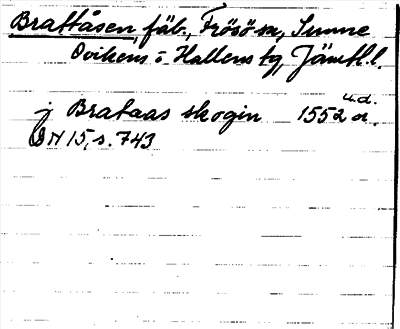 Brattåsen, fäb., Frösö sn, Sunne
Ovikens o. Hallens tg, Jämtl. l.
u.d.
j Brataas skogin 1552 a.
DN 15, s. 743